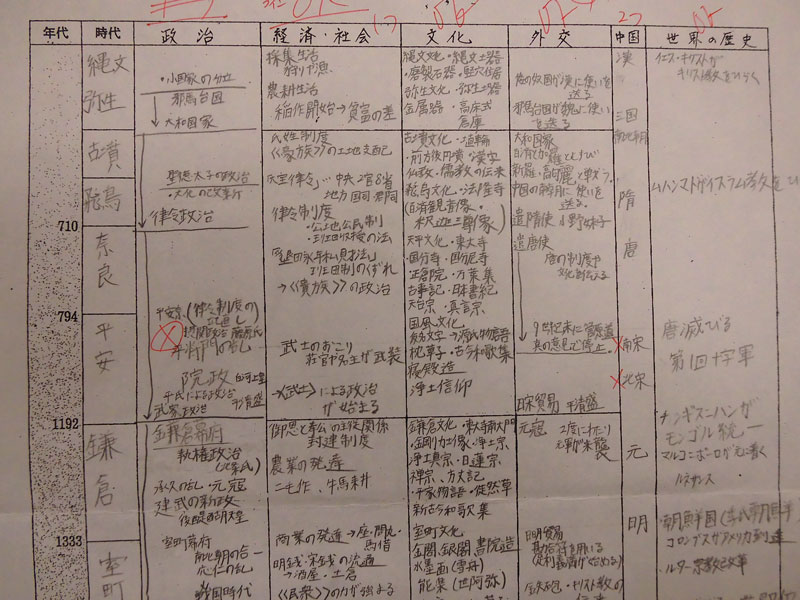 年代 時代 政治 経済・社会 文化 外交 中国 世界の歴史
縄文
弥生
・小国家の分立
邪馬台国
↓
大和国家
採集生活
狩りや漁
農耕生活
稲作開始→貧富の差
縄文文化・縄文土器
・磨製石器・竪穴住居
弥生文化・弥生土器
金属器・高床式
倉庫
倭の奴国が漢に使いを
送る
邪馬台国が魏に使い
を送る
漢
三国
南北朝
イエス・キリストが
キリスト教をひらく
古墳
飛鳥
聖徳太子の政治
・大化の改新
律令政治
氏姓制度
《豪族》の土地支配
律令制度
・公地公民制
・班田収授の法
古墳文化・埴輪
・前方後円墳・漢字
・仏教・儒教の伝来
飛鳥文化・法隆寺
大和国家
中国の南朝に使いを
送る
遣隋使 小野妹子
隋
710
奈良
墾田永年私財法
班田制のくずれ
→《貴族》の政治
天平文化・東大寺
・国分寺・国分尼寺
正倉院・万葉集
古事記・日本書紀
天台宗・真言宗
遣唐使
唐の制度や
文化を伝える
唐
794
平安
平安京
摂関政治 藤原氏
平将門の乱
院政 白河上皇
平氏による政治
武家政治 平清盛
武士のおこり
→《武士》による政治
が始まる
国風文化
かな文字→源氏物語
枕草子・古今和歌集
寝殿造
浄土信仰
9世紀末に菅原道
真の意見で停止
日宋貿易 平清盛
南宋
北宋
唐滅びる
第1回十字軍
1192
鎌倉
鎌倉幕府
執権政治
(北条氏)
承久の乱・元寇
建武の新政
後醍醐天皇
御恩と奉公の主従関係
封建制度
農業の発達
二毛作、牛馬耕
鎌倉文化・東大寺南大門
・金剛力士像・浄土宗
浄土真宗・日蓮宗
禅宗・方丈記
・平家物語・徒然草
新古今和歌集
元寇 2度にわたり
元軍が来襲
元
チンギス=ハンが
モンゴル統一
マルコ=ポーロが元に着く
ルネサンス
1333
室町
室町幕府
南北朝の合一
応仁の乱
戦国時代
商業の発達→座・問丸
・馬借
明銭・宋銭の流通
→酒屋・土倉
《民衆》の力が強まる
室町文化
金閣、銀閣 書院造
水墨画(雪舟)
能楽(世阿弥)
日明貿易
勘合符を用いる
(足利義満が始める)
明
・朝鮮国(李氏朝鮮
コロンブスがアメリカ到達
・ルター宗教改革